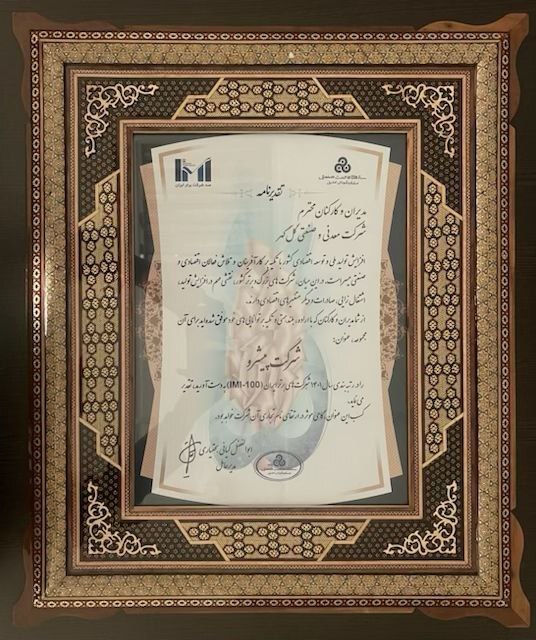 IMI
صد شرکت برتر ایران
سازمان مدیریت صنعتی
تقدیرنامه
مدیران و کارکنان محترم
شرکت معدنی و صنعتی گل گهر
افزایش تولید ملی و توسعه اقتصادی کشور، با تکیه بر کارآفرینان و تلاش فعالان اقتصادی و
صنعتی میسر است. در این میان، شرکت های بزرگ و برتر کشور، نقشی مهم در افزایش تولید،
اشتغال زایی، صادرات و دیگر متغیرهای اقتصادی دارند.
از شما مدیران و کارکنان که با اراده، بلند همتی و تکیه بر توانایی های خود موفق شده اید برای آن
مجموعه، عنوان:
شرکت پیشرو
را در رتبه بندی سال ۱۴۰۱ شرکت های برتر ایران (IMI-100) به دست آورید، تقدیر
می نماید.
کسب این عنوان، گامی موثر در ارتقای نام تجاری آن شرکت خواهد بود.
ابوالفضل کیانی بختیاری
مدیرعامل